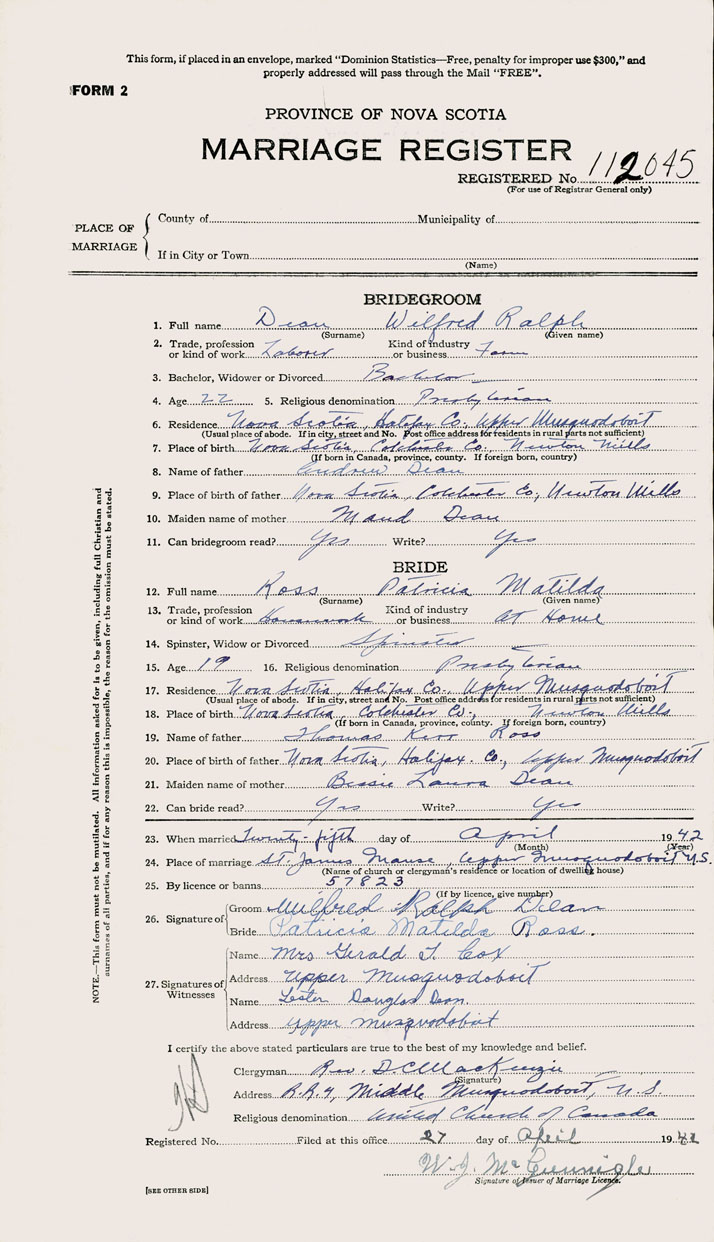 This form, if placed in an envelope, marked "Dominion Statistics—Free, penalty for improper use $300," and
properly addressed will pass through the Mail "FREE".
FORM 2
PROVINCE OF NOVA SCOTIA
MARRIAGE REGISTER
REGISTERED No. 112645
(For use of Registrar General only)
PLACE OF MARRIAGE
County of Municipality of
If in City or Town
(Name)
BRIDEGROOM
1. Full name Dean Wilfred Ralph
(Surname) (Given name)
2. Trade, profession or kind of work Laborer Kind of industry or business Farm
3. Bachelor, Widower or Divorced Bachelor
4. Age 22 5. Religious denomination Presbyterian
6. Residence Nova Scotia, Halifax Co., Upper Musquodoboit
(Usual place of abode. If in city, street and No. Post office address for residents in rural parts not sufficient)
7. Place of birth Nova Scotia, Colchester Co., Newton Mills
(If born in Canada, province, county. If foreign born, country)
8. Name of father Andrew Dean
9. Place of birth of father Nova Scotia, Colchester Co., Newton Mills
10. Maiden name of mother Maud Dean
11. Can bridegroom read? Yes Write? Yes
BRIDE
12. Full name Ross Patricia Matilda
(Surname) (Given name)
13. Trade, profession or kind of work Housework Kind of industry or business At Home
14. Spinster, Widow or Divorced Spinster
15. Age 19 16. Religious denomination Presbyterian
17. Residence Nova Scotia, Halifax Co., Upper Musquodoboit
(Usual place of abode. If in city, street and No. Post office address for residents in rural parts not sufficient)
18. Place of birth Nova Scotia, Colchester Co., Newton Mills
(If born in Canada, province, county. If foreign born, country)
19. Name of father Thomas Kerr Ross
20. Place of birth of father Nova Scotia, Halifax Co., Upper Musquodoboit
21. Maiden name of mother Bessie Laura Dean
22. Can bride read? Yes Write? Yes
23. When married Twenty-fifth day of April 1942
(Month) (Year)
24. Place of marriage St. James Manse, Upper Musquodoboit N.S.
(Name of church or clergyman's residence or location of dwelling house)
25. By licence or banns 57823
(If by licence, give number)
26. Signature of
Groom Wilfred Ralph Dean
Bride Patricia Matilda Ross.
27. Signatures of Witnesses
Name Mrs Gerald T. Cox
Address Upper Musquodoboit
Name Lester Douglas Dean
Address Upper Musquodoboit
I certify the above stated particulars are true to the best of my knowledge and belief.
Clergyman Rev. D.C. MacKenzie
(Signature)
Address R.R.4, Middle Musquodoboit, N.S.
Religious denomination United Church of Canada
Registered No. Filed at this office 27 day of April 1942
W. J. McCunnigle
Signature of Issuer of Marriage Licence.
[SEE OTHER SIDE]
NOTE.—This form must not be mutilated. All information asked for is to be given, including full Christian and
surnames of all parties, and if for any reason this is impossible, the reason for the omission must be stated.